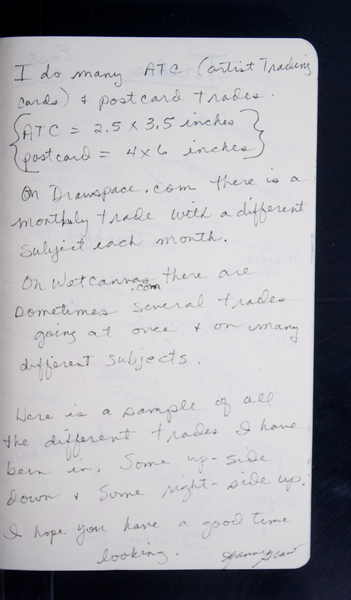 I do many ATC (artist Trading
cards) & postcard trades.
{ATC = 2.5 x 3.5 inches}
{postcard = 4x6 inches}
On Drawspace.com there is a
monthly trade with a different
subject each month.
On Wetcanvas.com there are
sometimes several trades
going at once & on many
different subjects.
Here is a sample of all
the different trades I have
been in. Some up-side
down & some right-side up.
I hope you have a good time
looking.